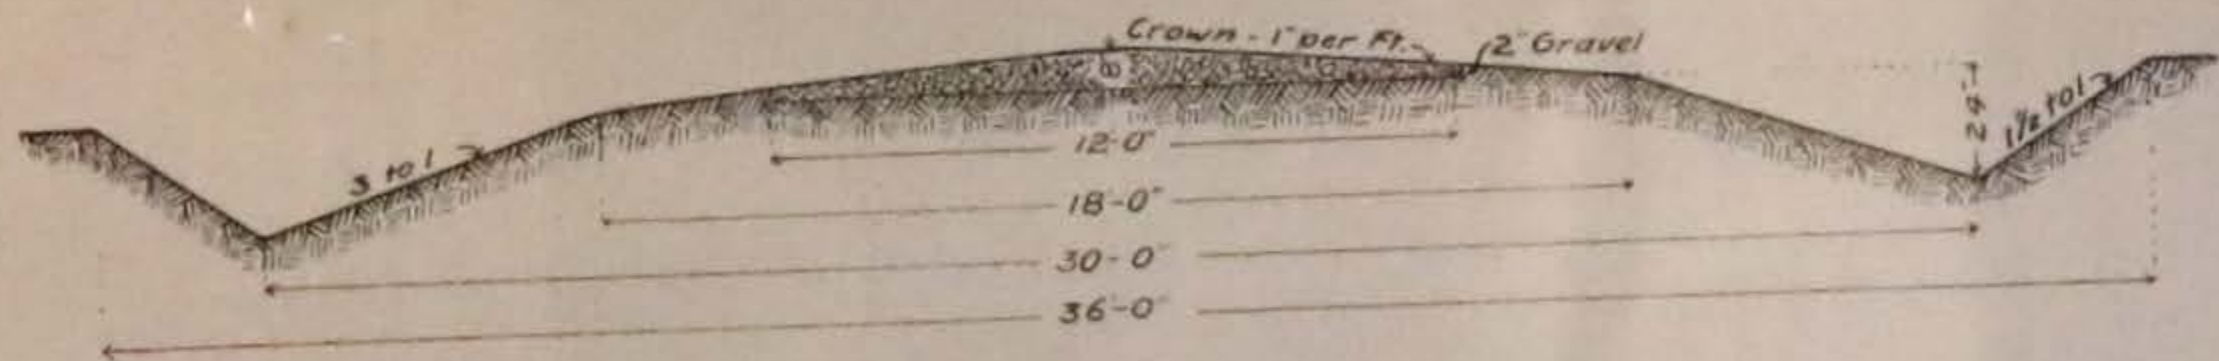 Crown - 1" per Ft.
2" Gravel
8"
3 to 1
2'-0"
1½ to 1
12'-0"
18'-0"
30'-0"
36'-0"